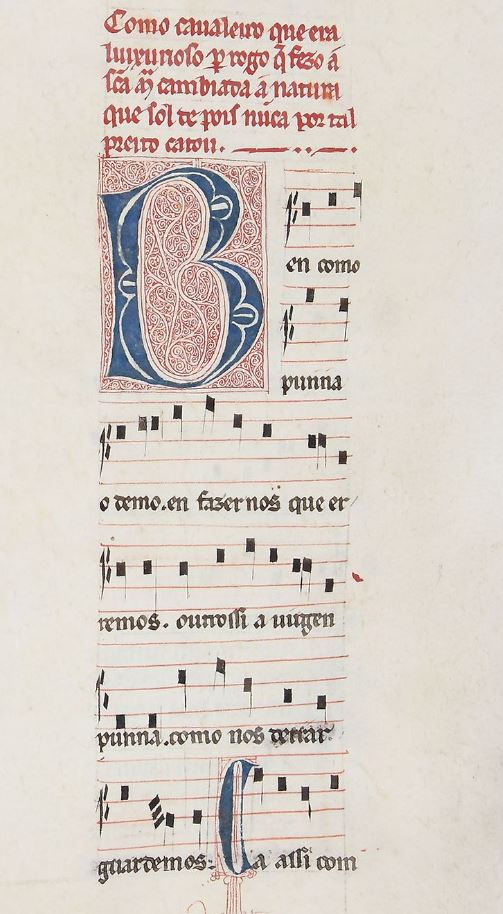 Como caualeiro que era
luxurioso p rogo q̄ fezo á
sc̄a m̄ cambiada á natura
que sol te pois nūca por tal
preito catou.
Ben como
punna
o demo. en fazer nos que er
remos. outrossi a uirgen
punna. como nos
guardemos: Ca assi com